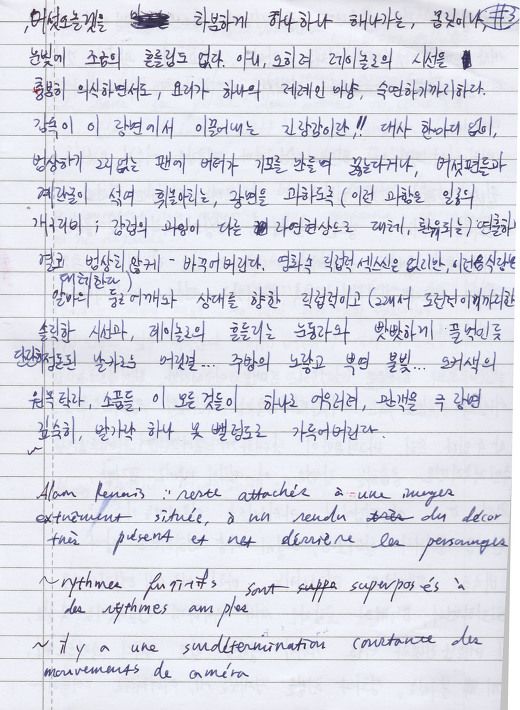 버섯오믈렛을 차분하게 하나하나 해나가는, 몸짓이나, #3
눈빛에 조금의 흔들림도 없다. 아니, 오히려 레이놀즈의 시선을
충분히 의식하면서도, 요리가 하나의 제례인 마냥, 숙연하기까지하다.
감독이 이 장면에서 이끌어내는 긴장감이란,!! 대사 한마디 없이,
범상하기 그지없는 팬에 버터가 기포를 만들며 끓는다거나, 버섯편들과
계란물이 섞여 휘몰아치는, 장면을 과하도록 (이런 과함은 일종의
감정의 과잉이 다른 자연현상으로 대체, 환유되는) 연출하
결코 범상치 않게 - 바꾸어버린다. 영화속 직접적 섹스신은 없지만, 이런
대체한다)
알마의 둥근 어깨와 상대를 향한 직접적이고 (그래서 도전적이기까지한
솔직한 시선과, 레이놀즈의 흔들리는 눈동자와 빳빳하게 풀먹인듯
단단히 정돈된 날카로운 머릿결... 주방의 노랗고 뿌연 불빛... 오커색의
원목탁자, 소품들, 이 모든 것들이 하나로 어우러져, 관객을 극 장면
깊숙히, 발가락 하나 못 뺄정도로 가두어버린다.
Alain Renais : reste attachés à une images
extrêment située, à un rendu du décor
très présent et net derrière les personnages
~ rythmes furitifs sont superposés à
des rythmes amples
~ il y a une surdétermination constante des
mouvements de caméra